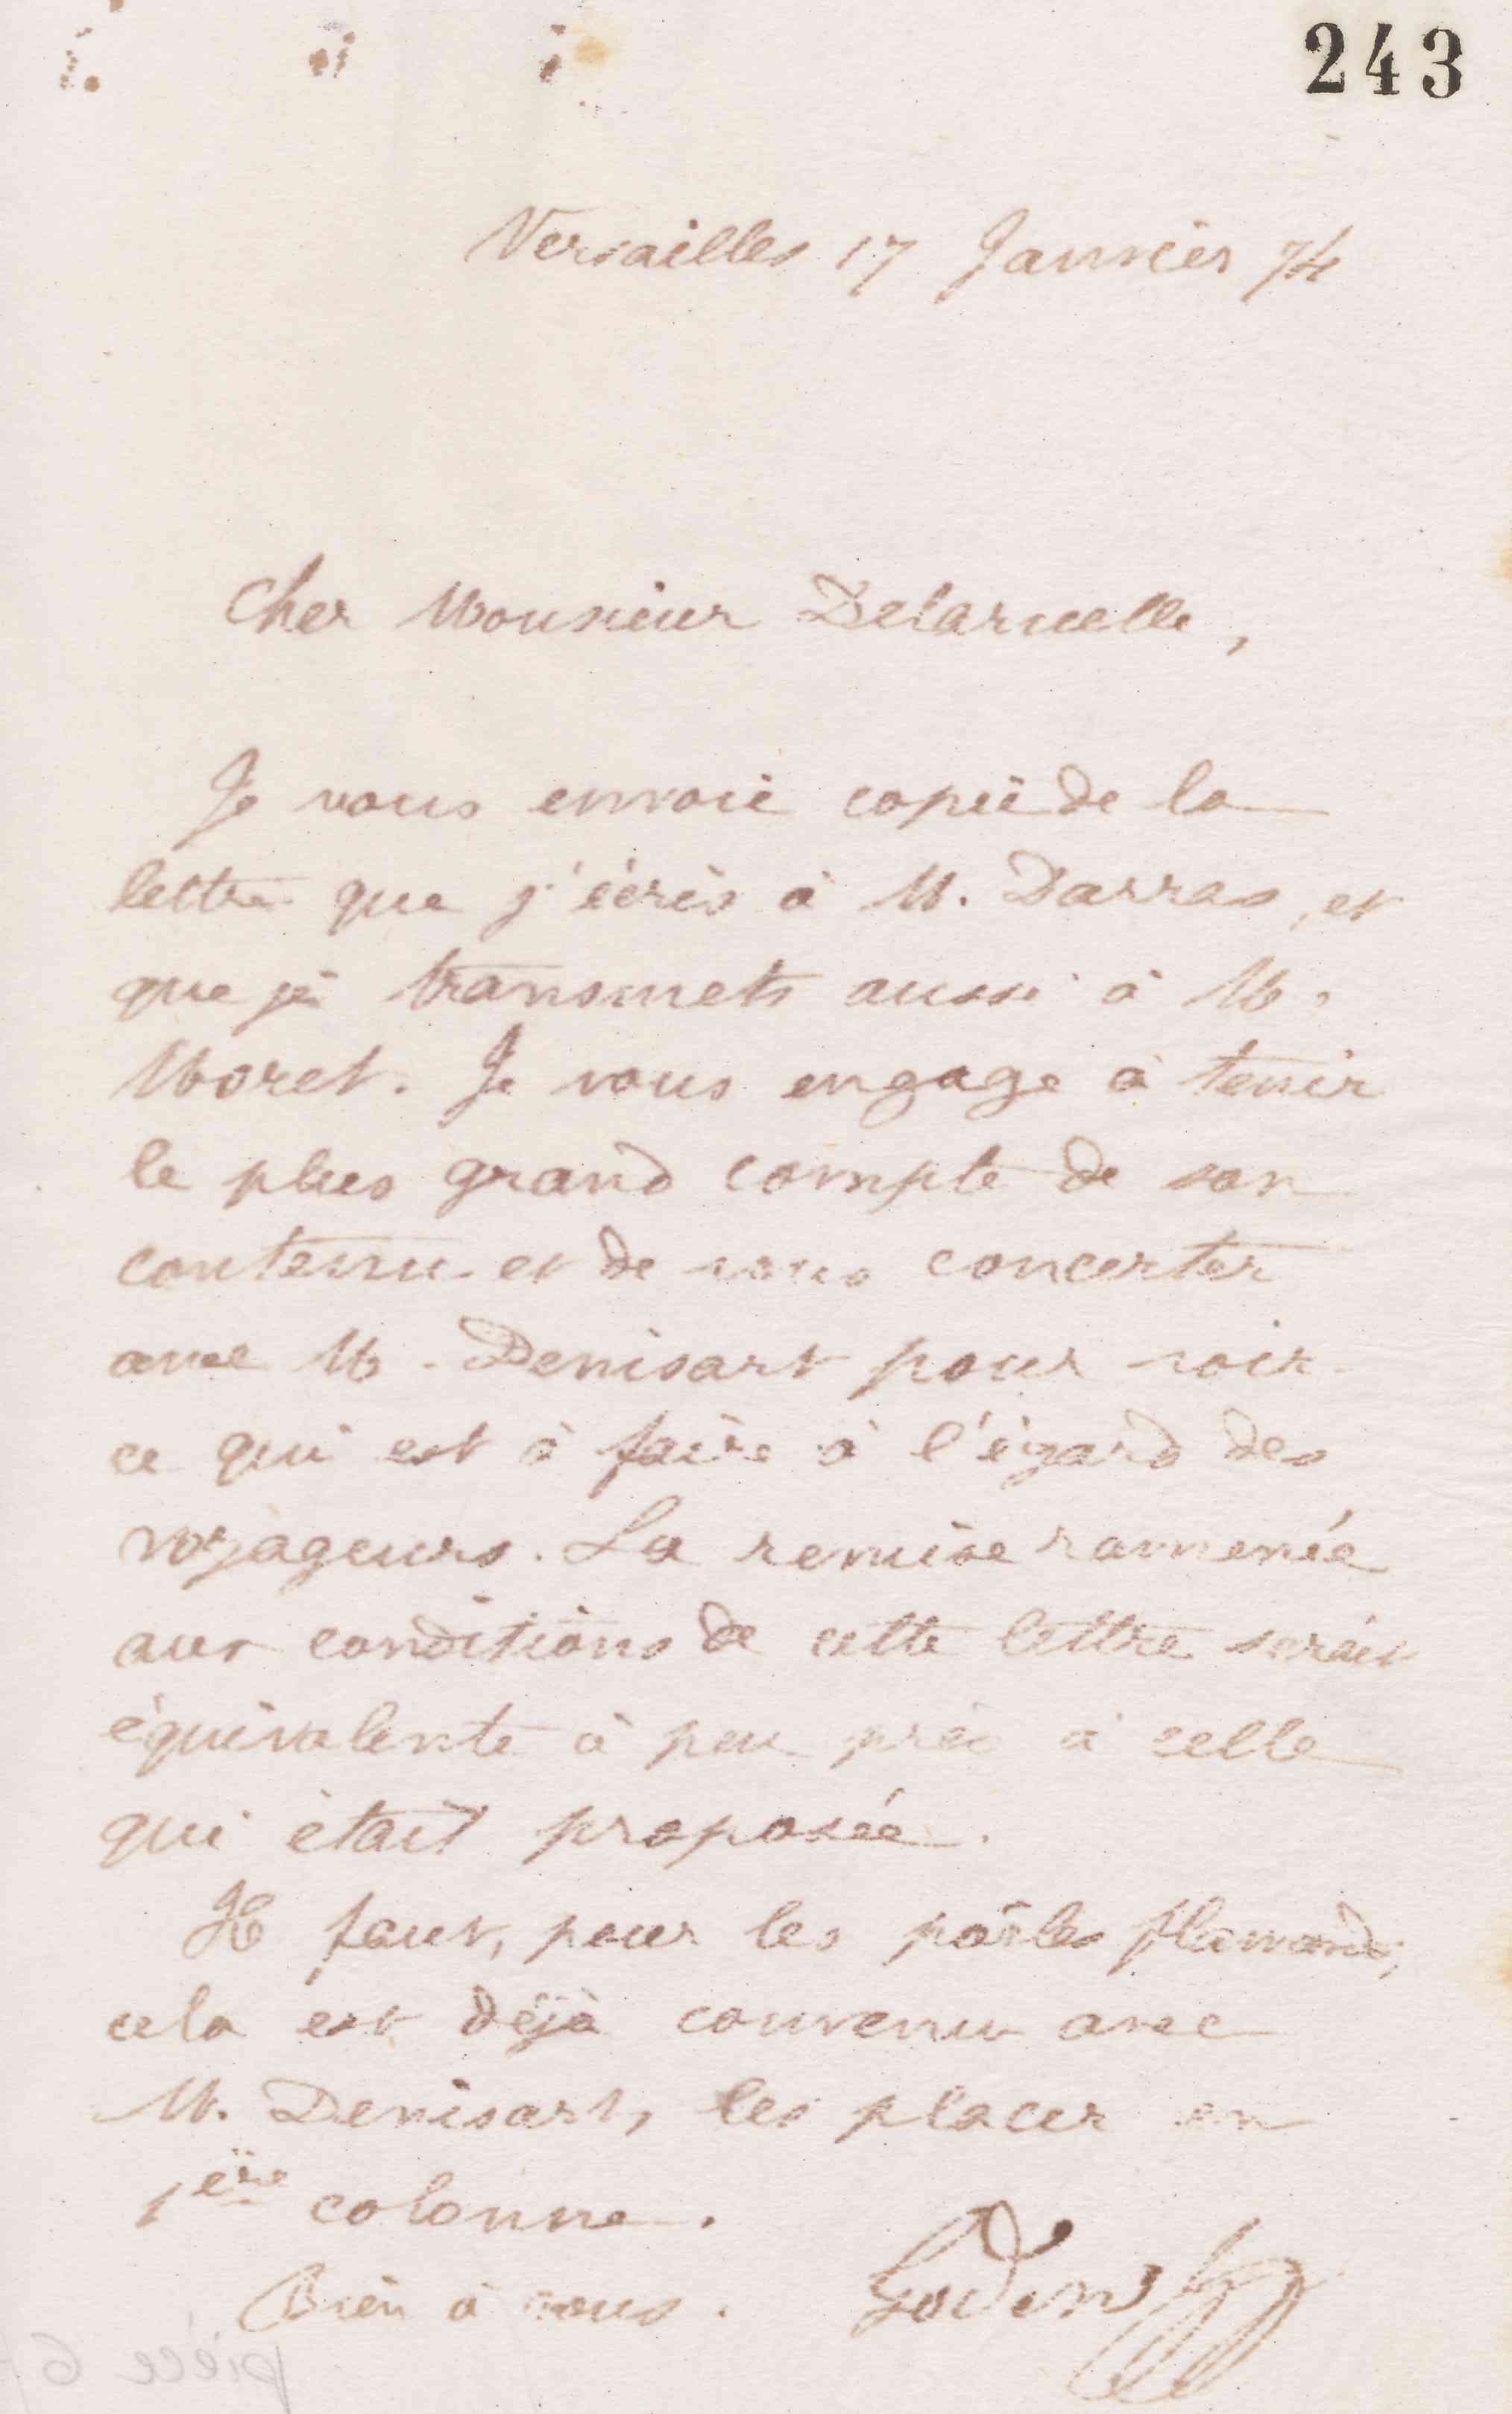 243
Versailles 17 Janvier 74
Cher Monsieur Delaruelle,
Je vous envoie copie de la
lettre que j'écris à M. Darras, et
que je transmets aussi à M.
Moret. Je vous engage à tenir
le plus grand compte de son
contenu et de vous concerter
avec M. Denisart pour voir
ce qui est à faire à l'égard des
voyageurs. La remise ramenée
aux conditions de cette lettre serait
équivalente à peu près à celle
qui était proposée.
Il faut, pour les poëles flamands,
cela est déjà convenu avec
M. Denisart, les placer en
1ère colonne.
Bien à vous. Godin
pièce 6